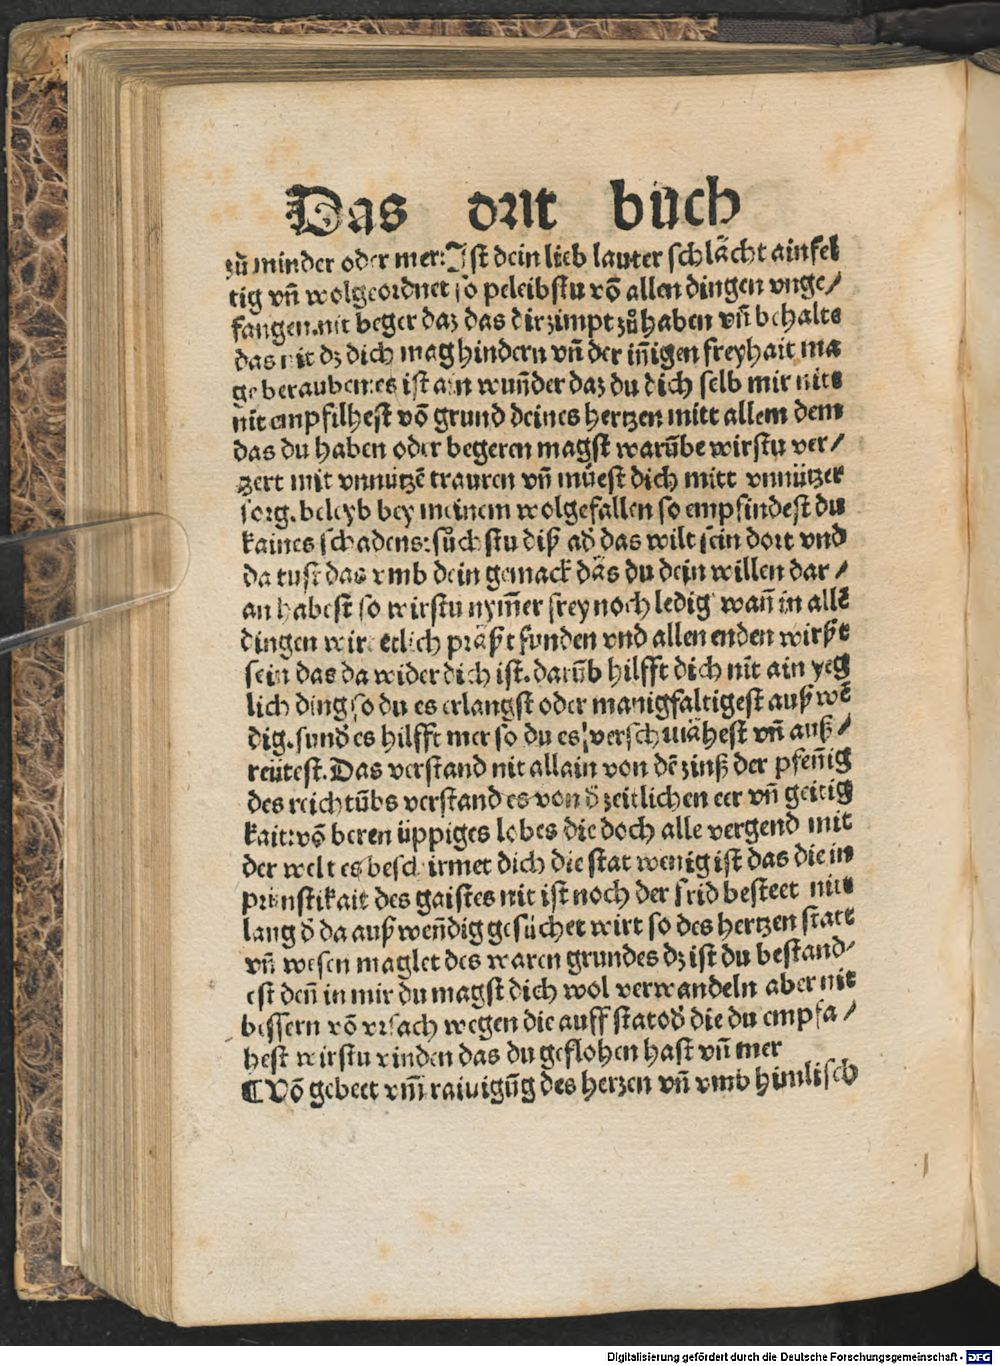 Das drit bůch
zů minder oder mer: Ist dein lieb lauter schlächt ainfel
tig vn̄ wolgeordnet so peleibstu võ allen dingen vnge/
fangen. nit beger daz das dir zimpt zů haben vn̄ behalte
das nit dz dich mag hindern vn̄ der in̄igen freyhait ma
ge berauben: es ist ain wun̄der daz du dich selb mir nite
nit empfilhest võ grund deines hertzen mitt allem dem
das du haben oder begeren magst warūbe wirstu ver/
zert mit vnnützē trauren vn̄ müest dich mitt vnnützer
sorg. beleyb bey meinem wolgefallen so empfindest du
kaines schadens: sůchstu diß ad̕ das wilt sein dort vnd
da tust das vmb dein gemack das du dein willen dar/
an habest so wirstu nym̄er frey noch ledig wan̄ in allē
dingen wirt etlich präst funden vnd allen enden wirßt
sein das da wider dich ist. darūb hilfft dich nit ain yeg
lich ding so du es erlangst oder manigfaltigest außwē
dig. sund̕ es hilfft mer so du es verschmähest vn̄ auß/
reütest. Das verstand nit allain von dē zinß der pfen̄ig
des reichtūbs verstand es von d̕ zeitlichen eer vn̄ geitig
kait: võ beren üppiges lobes die doch alle vergend mit
der welt es beschirmet dich die stat wenig ist das die in
prünstikait des gaistes nit ist noch der frid besteet nite
lang d̕ da außwen̄dig gesüchet wirt so des hertzen statt
vn̄ wesen maglet des waren grundes dz ist du bestand-
est den̄ in mir du magst dich wol verwandeln aber nit
bessern võ vrsach wegen die auff statod̕ die du empfa/
hest wirstu vinden das du geflohen hast vn̄ mer
¶ Võ gebeet vm̄ rainigūg des herzen vn̄ vmb himlisch
Digitalisierung gefördert durch die Deutsche Forschungsgemeinschaft - DFG